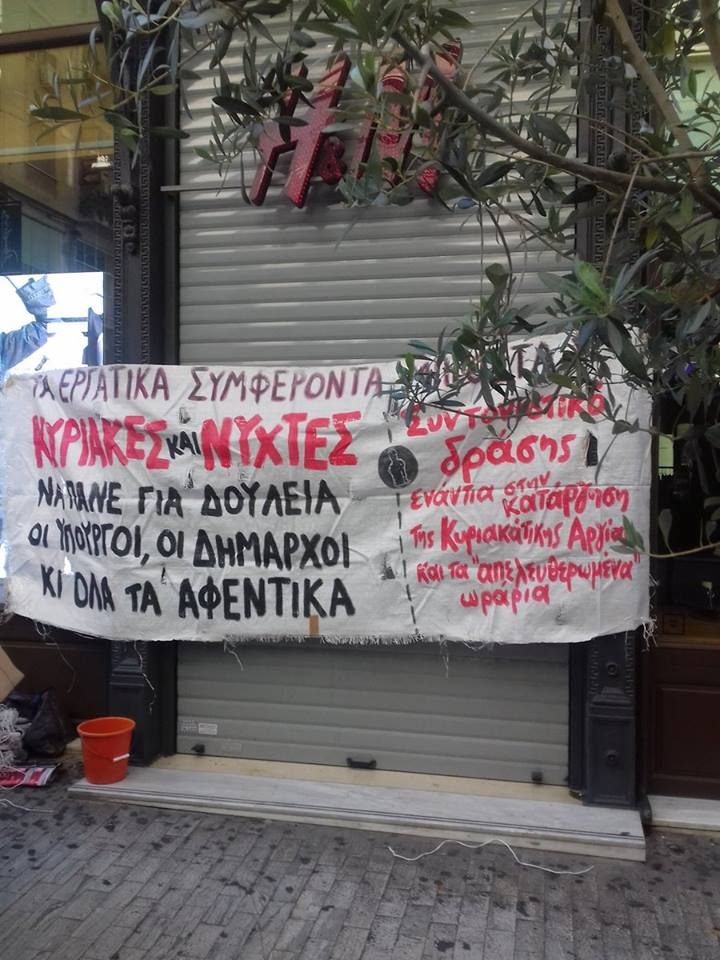 H&M
ΤΑ ΕΡΓΑΤΙΚΑ ΣΥΜΦΕΡΟΝΤΑ
ΚΥΡΙΑΚΕΣ ΚΑΙ ΝΥΧΤΕΣ
ΝΑ ΠΑΝΕ ΓΙΑ ΔΟΥΛΕΙΑ
ΟΙ ΥΠΟΥΡΓΟΙ, ΟΙ ΔΗΜΑΡΧΟΙ
ΚΙ ΟΛΑ ΤΑ ΑΦΕΝΤΙΚΑ
Συντονιστικό
δράσης
ενάντια στην
κατάργηση
της Κυριακάτικης Αργίας
και τα "απελευθερωμένα"
ωράρια